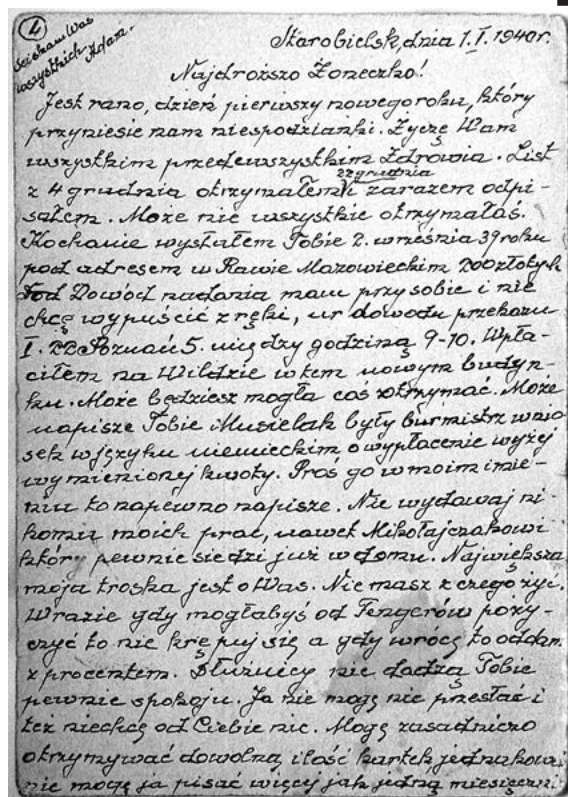 4
Ściskam Was
wszystkich Adam.
Starobielsk, dnia 1.I.1940r.
Najdroższo Żoneczko!
Jest rano, dzień pierwszy nowego roku, który
przyniesie nam niespodzianki. Życzę Wam
wszystkim przedewszystkim Zdrowia. List
22 grudnia
z 4 grudnia otrzymałem i zarazem odpi-
sałem. Może nie wszystkie otrzymałaś.
Kochanie wysłałem Tobie 2. września 39 roku
pod adresem w Rawie Mazowieckim 200 złotych
Dowód nadania mam przy sobie i nie
chcę wypuścić z ręki, nr dowodu przekazu
I. 22 Poznań 5. między godziną 9-10. Wpła-
ciłem na Wildzie w tem nowym budyn-
ku. Może będziesz mogła coś otrzymać. Może
napisze Tobie Musielak były burmistrz wnio-
sek w języku niemieckim o wypłacenie wyżej
wymienionej kwoty. Proś go w moim imie-
niu to napewno napisze. Nie wydawaj ni-
komu moich prac, nawet Mikołajczakowi
który pewnie siedzi już w domu. Największa
moja troska jest o Was. Nie masz z czego żyć.
W razie gdy mogłabyś od Fengerów poży-
czyć to nie krępuj się a gdy wrócę to oddam
z procentem. Dłużnicy nie dadzą Tobie
pewnie spokoju. Ja nie mogę nic przesłać i
też niechcę od Ciebie nic. Mogę zasadniczo
otrzymywać dowolną ilość kartek, jednakowoż
nie mogę ja pisać więcej jak jedną miesięcznie